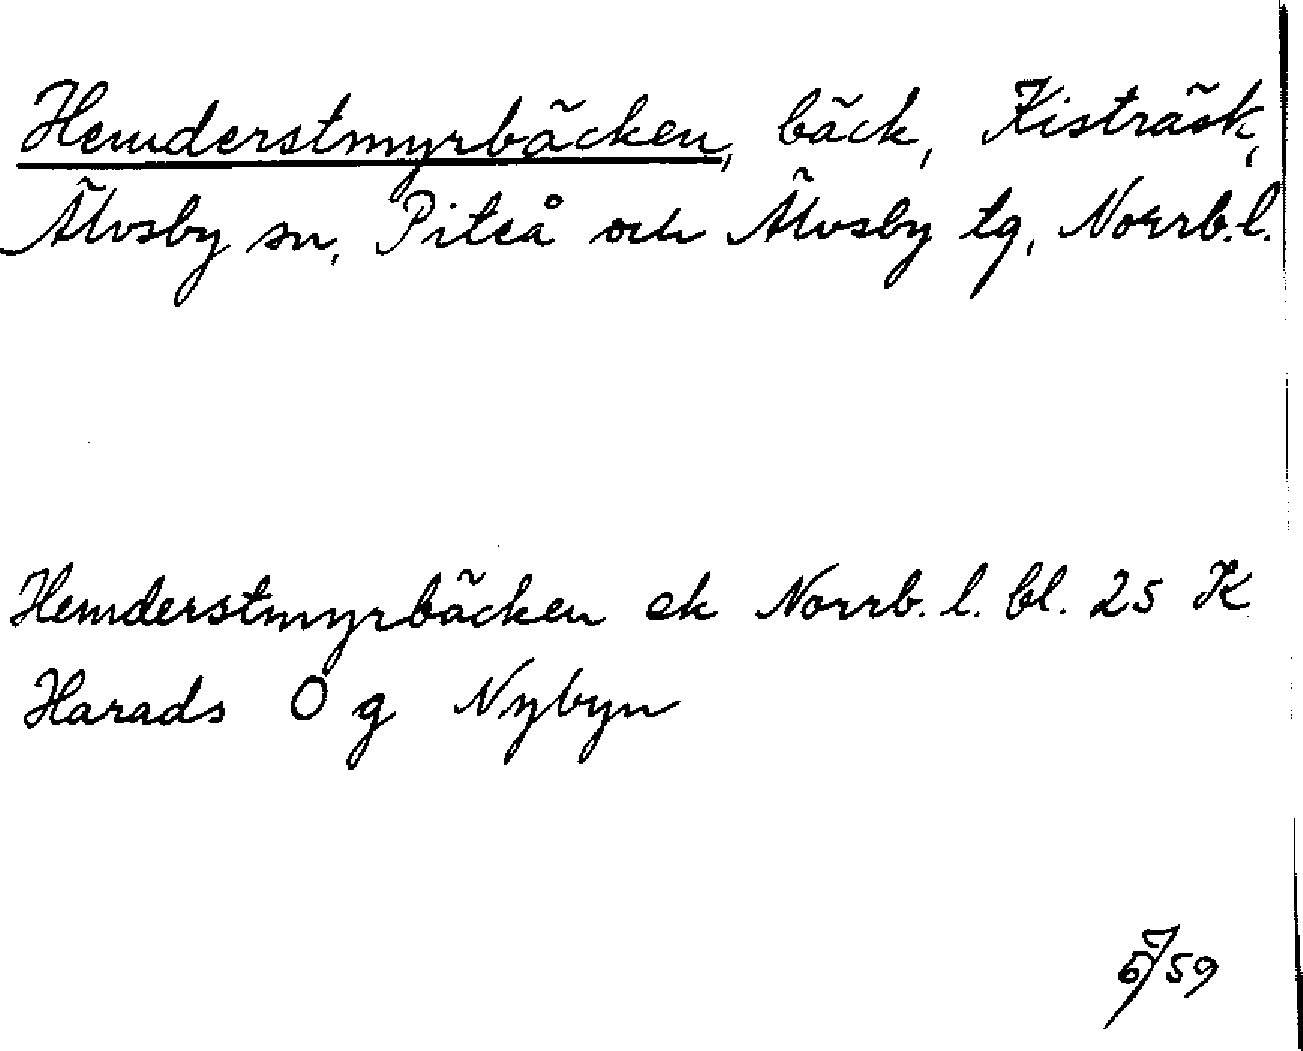 Hemderstmyrbäcken, bäck, Kisträsk,
Älvsby sn, Piteå och Älvsby tg, Norrb.l.
Hemderstmyrbäcken ek Norrb. l. bl. 25 K
Harads O g Nybyn
59